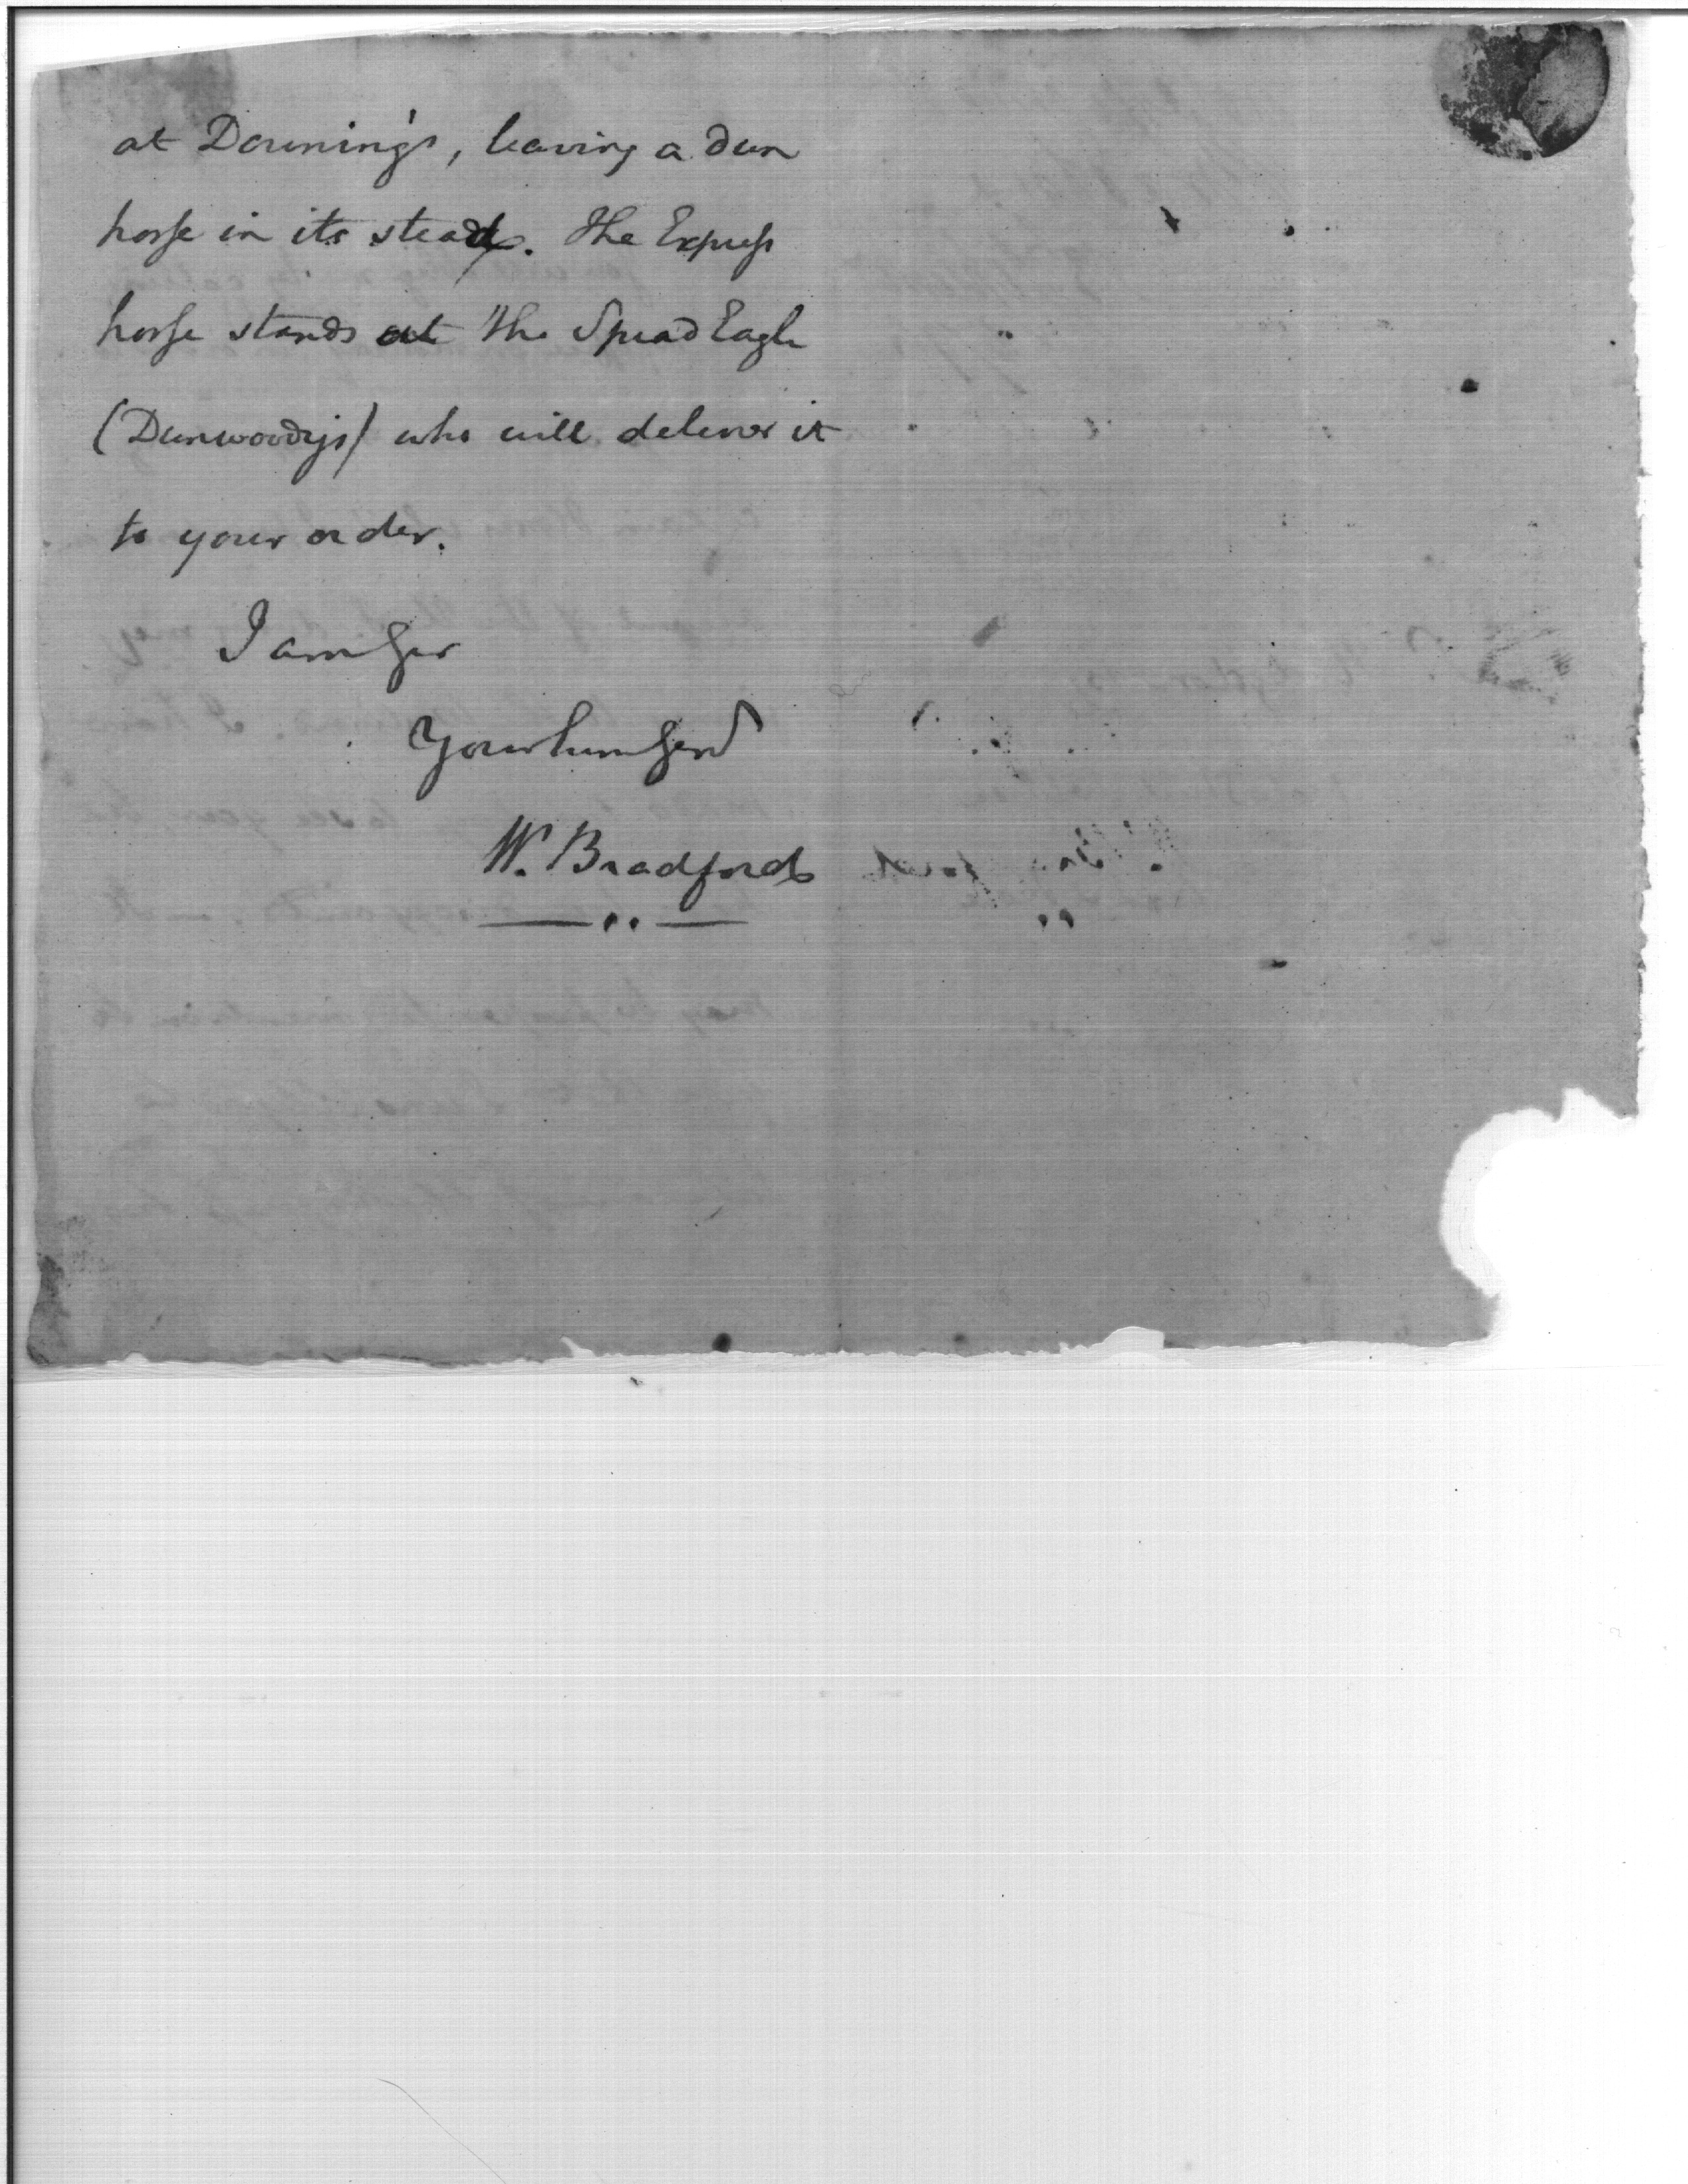 at Downing's, leaving a dun
horse in its stead. The Express
horse stands at the Spread Eagle
(Dunwoody's) who will deliver it
to your order.
I am Sir
Your hum Serv
W. Bradford